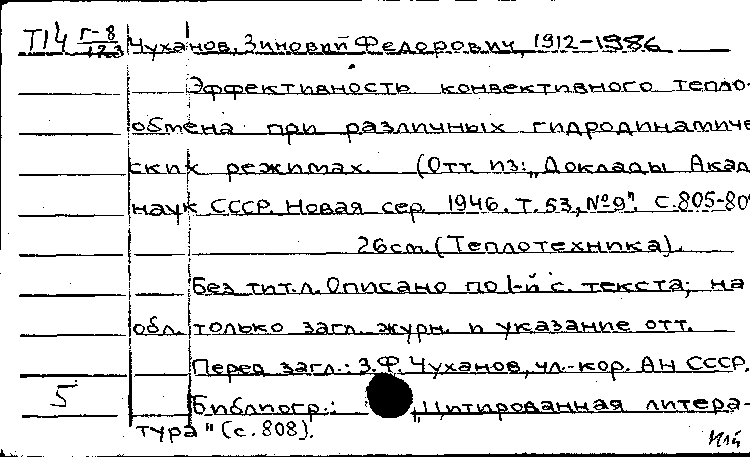 Т14 Г-8/123 Чуханов, Зиновий Федорович, 1912-1986
Эффективность конвективного тепло-
обмена при различных гидродинамиче
ских режимах. (Отт. из: „Доклады Акад
наук СССР. Новая сер. 1946. Т. 53, №9". С.805-80
26см. (Теплотехника).
Без тит.л. Описано по 1-й с. текста; на
обл. только загл. журн. и указание отт.
Перед загл.: З.Ф. Чуханов, чл.-кор. АН СССР.
5 Библиогр.: „Цитированная литера-
тура" (с. 808).